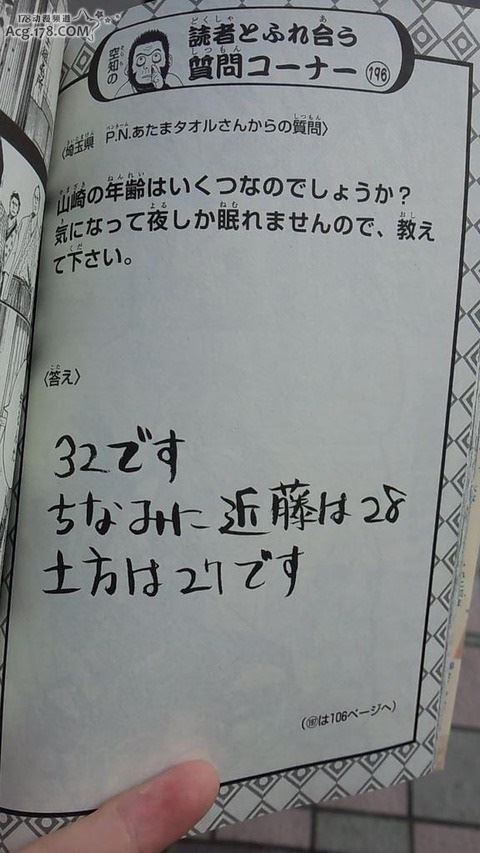 178动漫频道
Acg.178.COM
空知の
読者とふれ合う
質問コーナー
196
〈埼玉県 P.N.あたまタオルさんからの質問〉
山崎の年齢はいくつなのでしょうか?
気になって夜しか眠れませんので、教え
て下さい。
〈答え〉
32です
ちなみに近藤は28
土方は27です
(197は106ページへ)